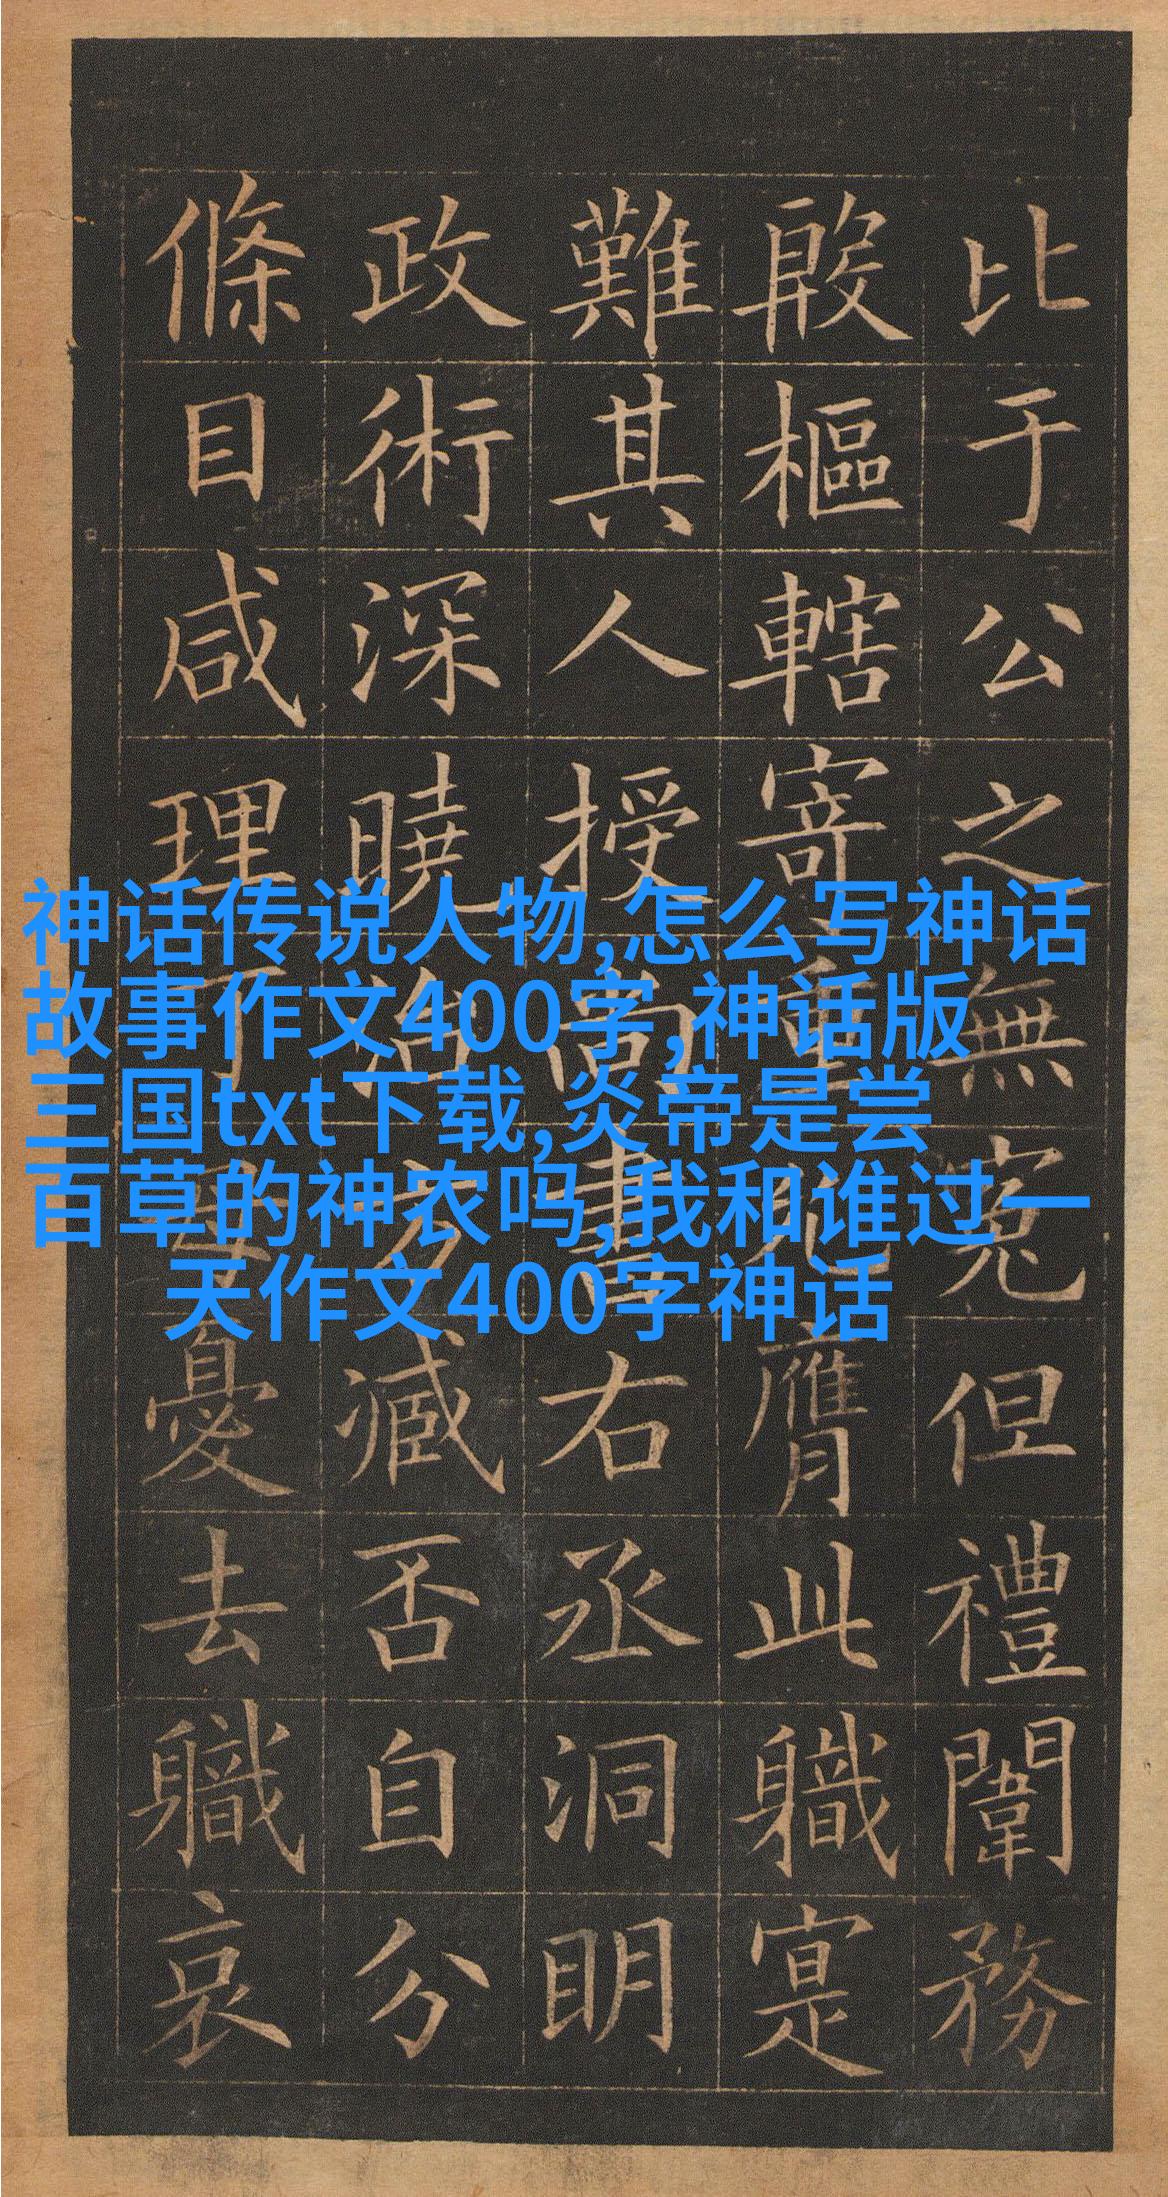 比于公之無寃但禮闈務
殷樞轄寄重允膺此職寔
難其人授尚書右丞洞明
政術深曉治方臧否自分
條目咸理丁母憂去職哀
神话传说人物,怎么写神话
故事作文400字,神话版
三国txt下载,炎帝是尝
百草的神农吗,我和谁过一
天作文400字神话